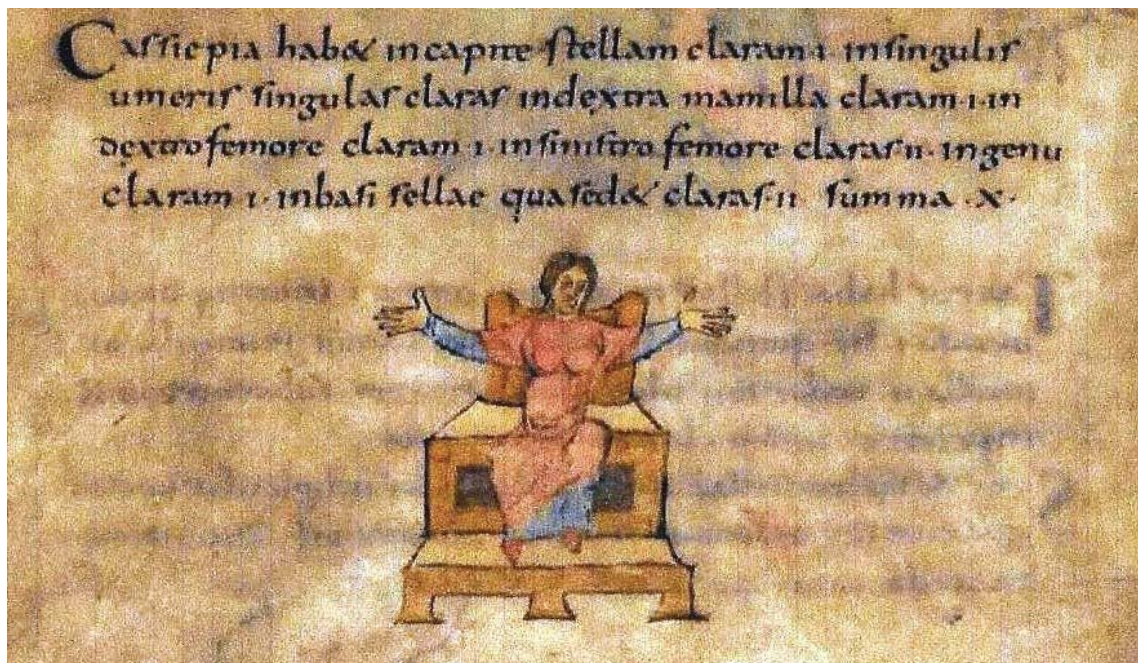 Cassiepia hab& incapite stellam claram ı insingulis
umeris singulas claras indęxtra mamilla claram ·ı· in
dęxtro femore claram ı· insinistro femore claras ıı· ingenu
claram ı· inbasi sellae qua sed& claras·ıı summa ·x·